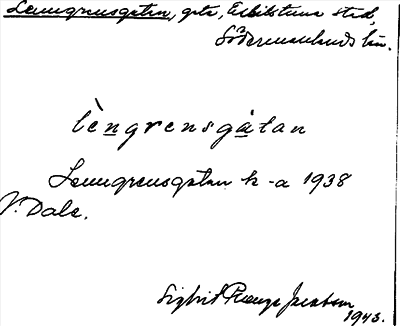 Lenngrensgatan, gata, Eskilstuna stad,
Södermanlands län.
lèngrensgàtan
Lenngrensgatan k-a 1938
V. Dale.
Sigfrid Range Jacobson
1943.